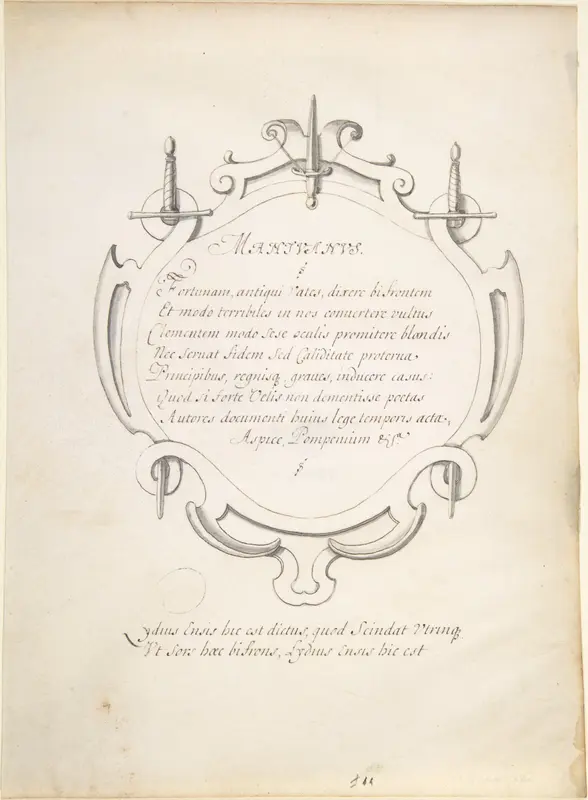 MANTVANVS.
Fortunam, antiqui Vates, dixere bifrontem
Et modo terribiles in nos conuertere vultus
Clementem modo sese oculis promitere blandis
Nec seruat fidem sed Caliditate proterua
Principibus, regnisq, graues, inducere casus:
Quod si forte Velis non dementisse poetas
Autores documenti huius lege temporis acta,
Aspice, Pompenium &c.a
Lydius Ensis hic est dictus, quod Scindat Vtrinq,
Vt Sors hæc bifrons, Lydius Ensis hic est